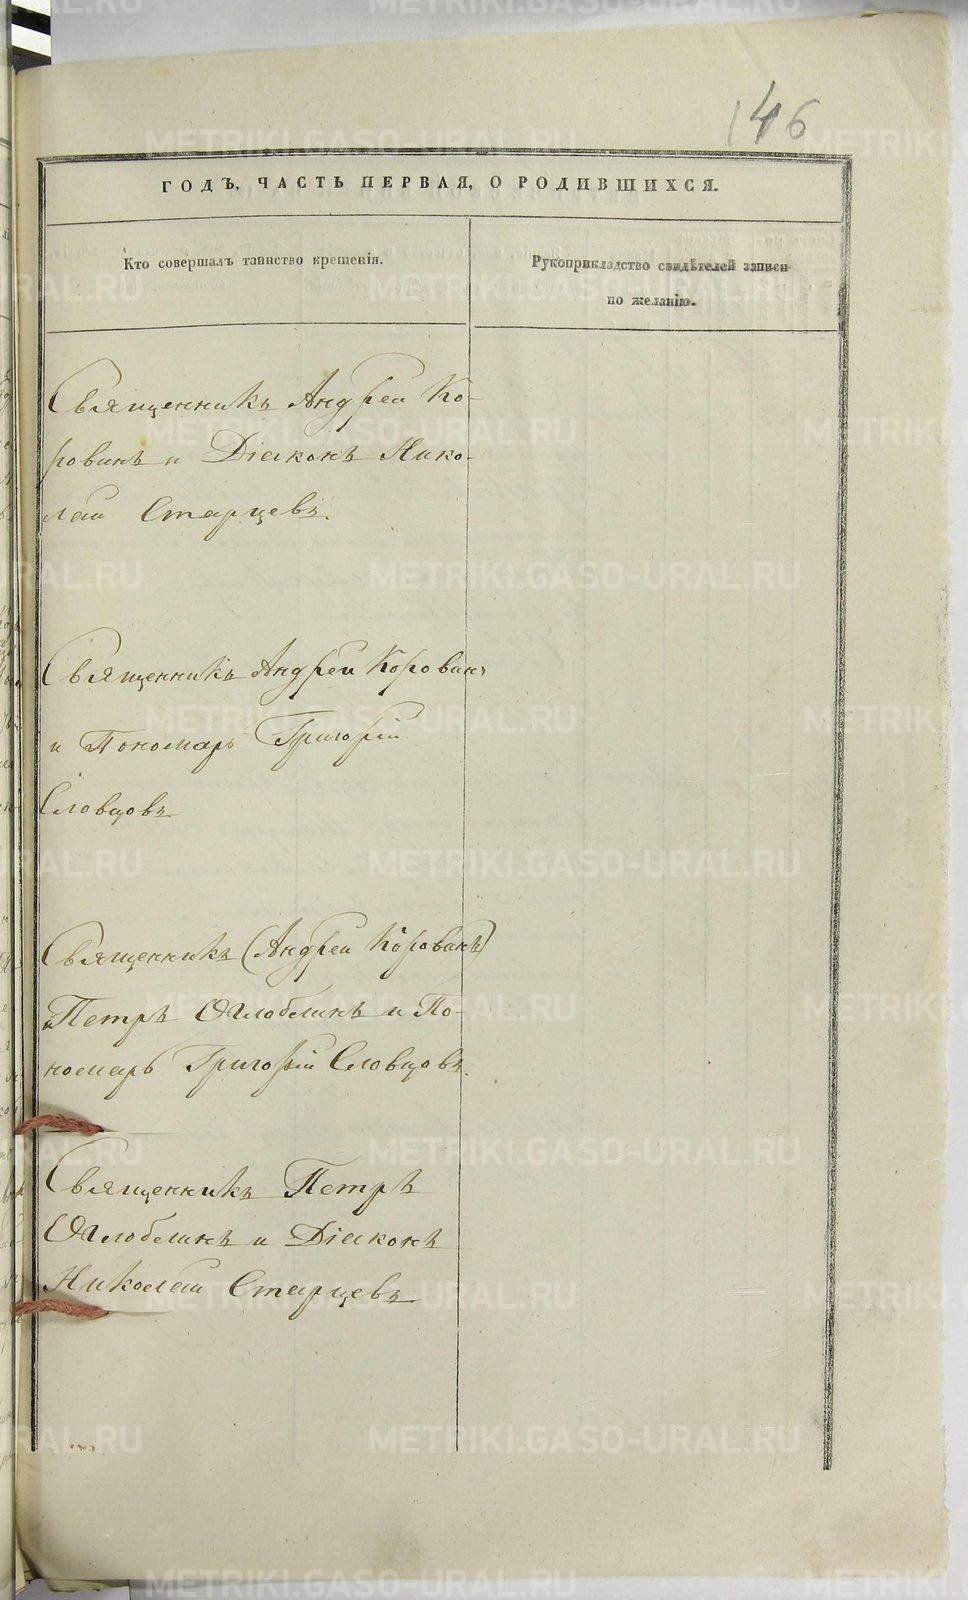 146
ГОДЪ, ЧАСТЬ ПЕРВАЯ, О РОДИВШИХСЯ.
Кто совершалъ таинство крещенія.
Рукоприкладство свидѣтелей записи
по желанію.
Священникъ Андрей Ко-
ровинъ и Діаконъ Нико-
лай Старцевъ.
Священникъ Андрей Коровинъ
и Пономарь Григорій
Словцовъ
Священникъ (Андрей Коровинъ)
Петръ Оглоблинъ и По-
номарь Григорій Словцовъ.
Священникъ Петръ
Оглоблинъ и Діаконъ
Николай Старцевъ
METRIKI.GASO-URAL.RU